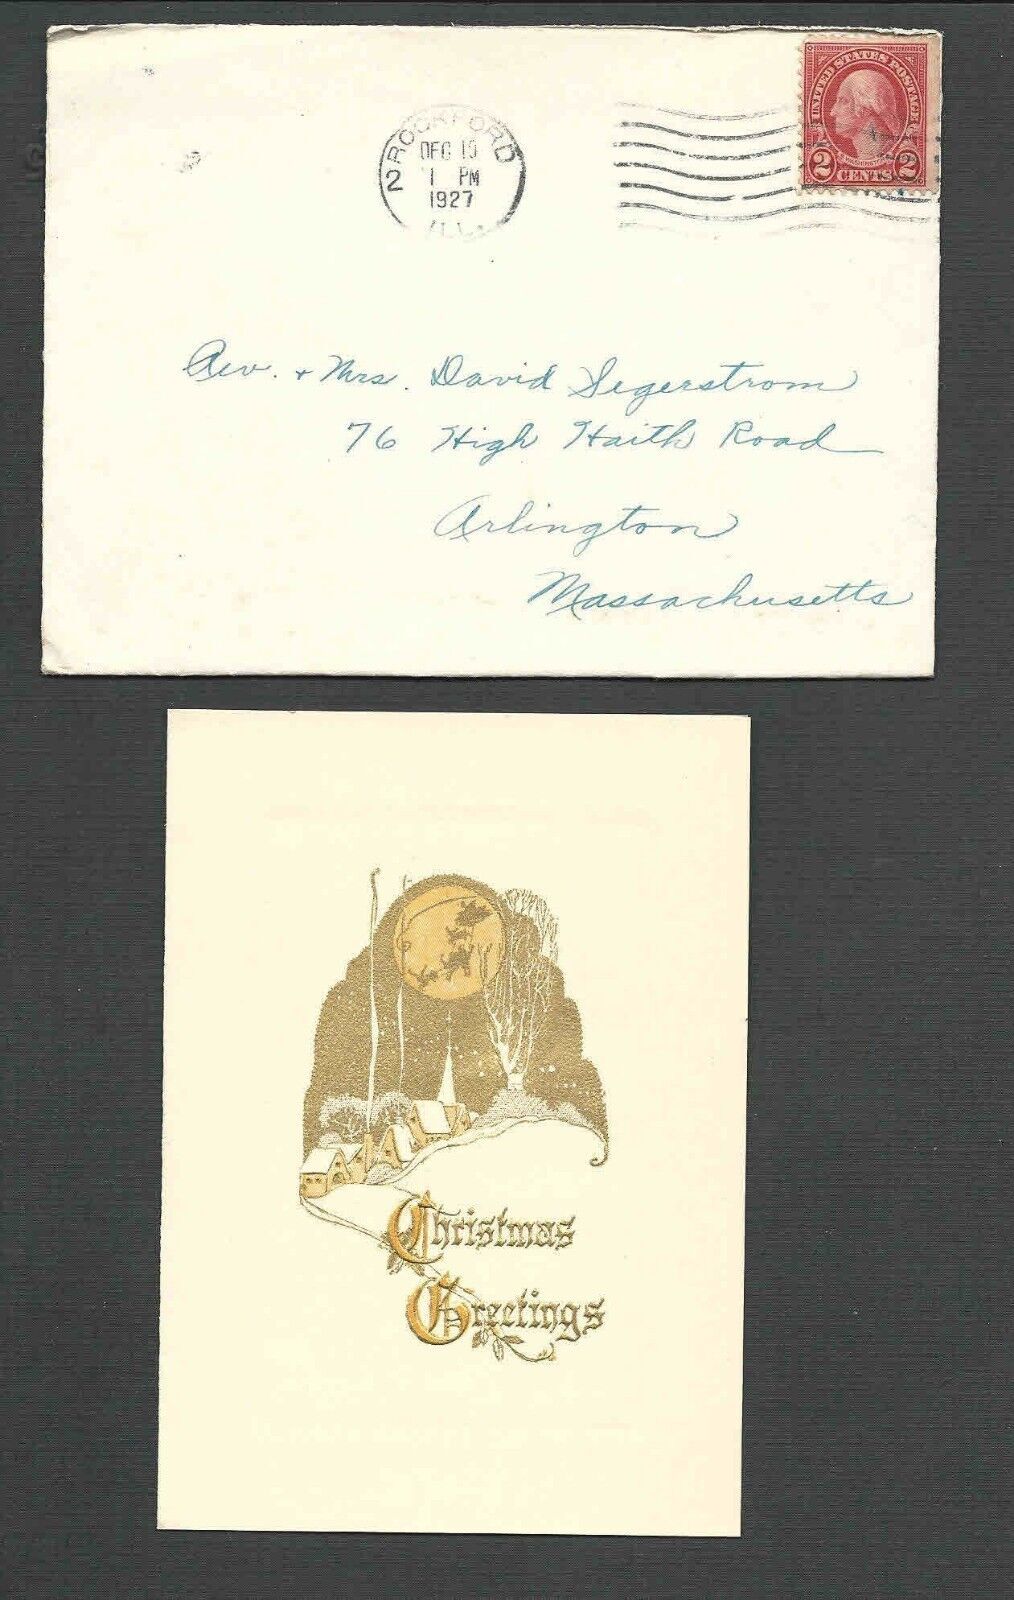 ROCKFORD
DEC 1
1 PM
1927
ILL.
2
UNITED STATES POSTAGE
2 WASHINGTON 2
CENTS
Rev. + Mrs. David Segerstrom
76 High Haith Road
Arlington
Massachusetts
Christmas
Greetings